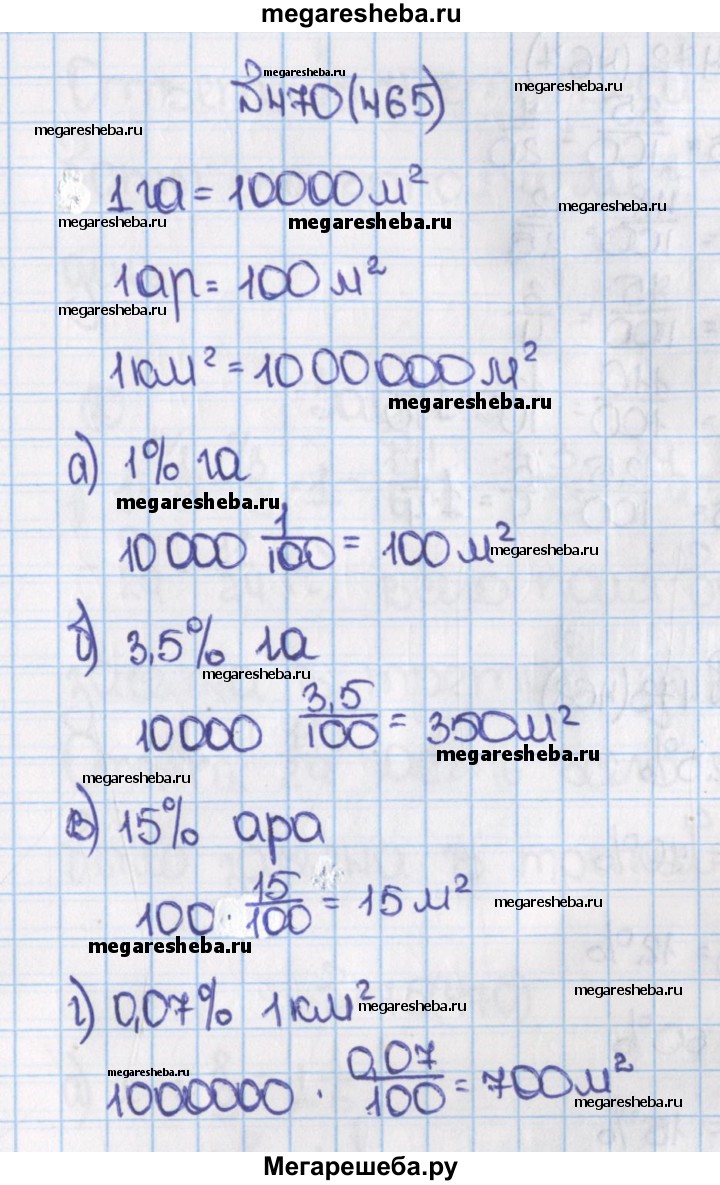 megaresheba.ru
megaresheba.ru
№470(465)
megaresheba.ru
megaresheba.ru
1 га = 10000 м²
megaresheba.ru
megaresheba.ru
megaresheba.ru
1 ар = 100 м²
megaresheba.ru
1 км² = 1000000 м²
megaresheba.ru
а) 1% га
megaresheba.ru
10 000 1/100 = 100 м²
megaresheba.ru
б) 3,5% га
megaresheba.ru
10 000 3,5/100 = 350 м²
megaresheba.ru
megaresheba.ru
в) 15% ара
100 · 15/100 = 15 м²
megaresheba.ru
megaresheba.ru
г) 0,07% 1 км²
megaresheba.ru
megaresheba.ru
megaresheba.ru
1000000 · 0,07/100 = 700 м²
megaresheba.ru
Мегарешеба.ру